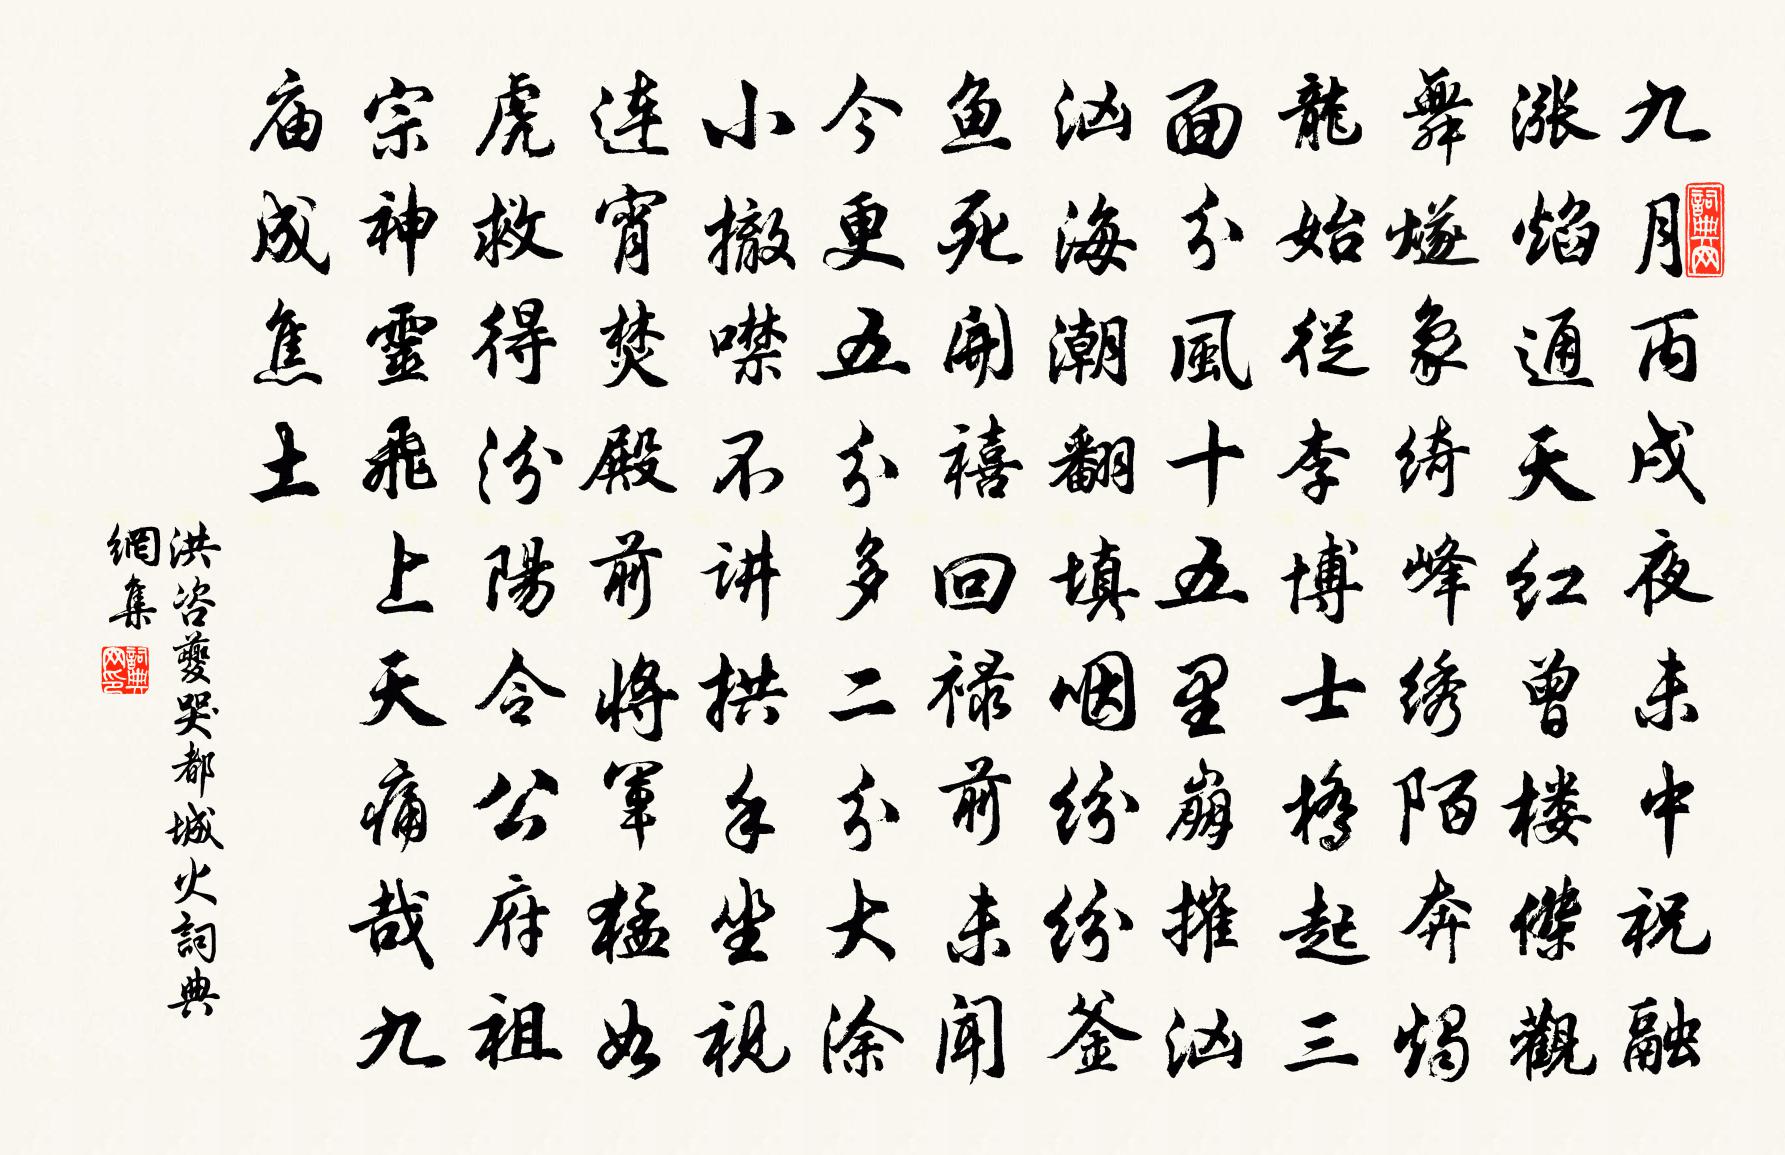 九月丙戌夜未中祝融
漲焰通天紅曾楼傑觀
舞燧象绮峰绣陌奔燭
龍始從李博士橋起三
面分風十五里崩摧汹
汹海潮翻填咽紛紛釜
鱼死開禧回禄前未聞
今更五分多二分大涂
小撤噤不讲拱手坐視
連宵焚殿前將軍猛如
虎救得汾陽令公府祖
宗神靈飛上天痛哉九
庙成焦土
洪咨夔哭都城火詞典
網集
詞典网
詞典网印